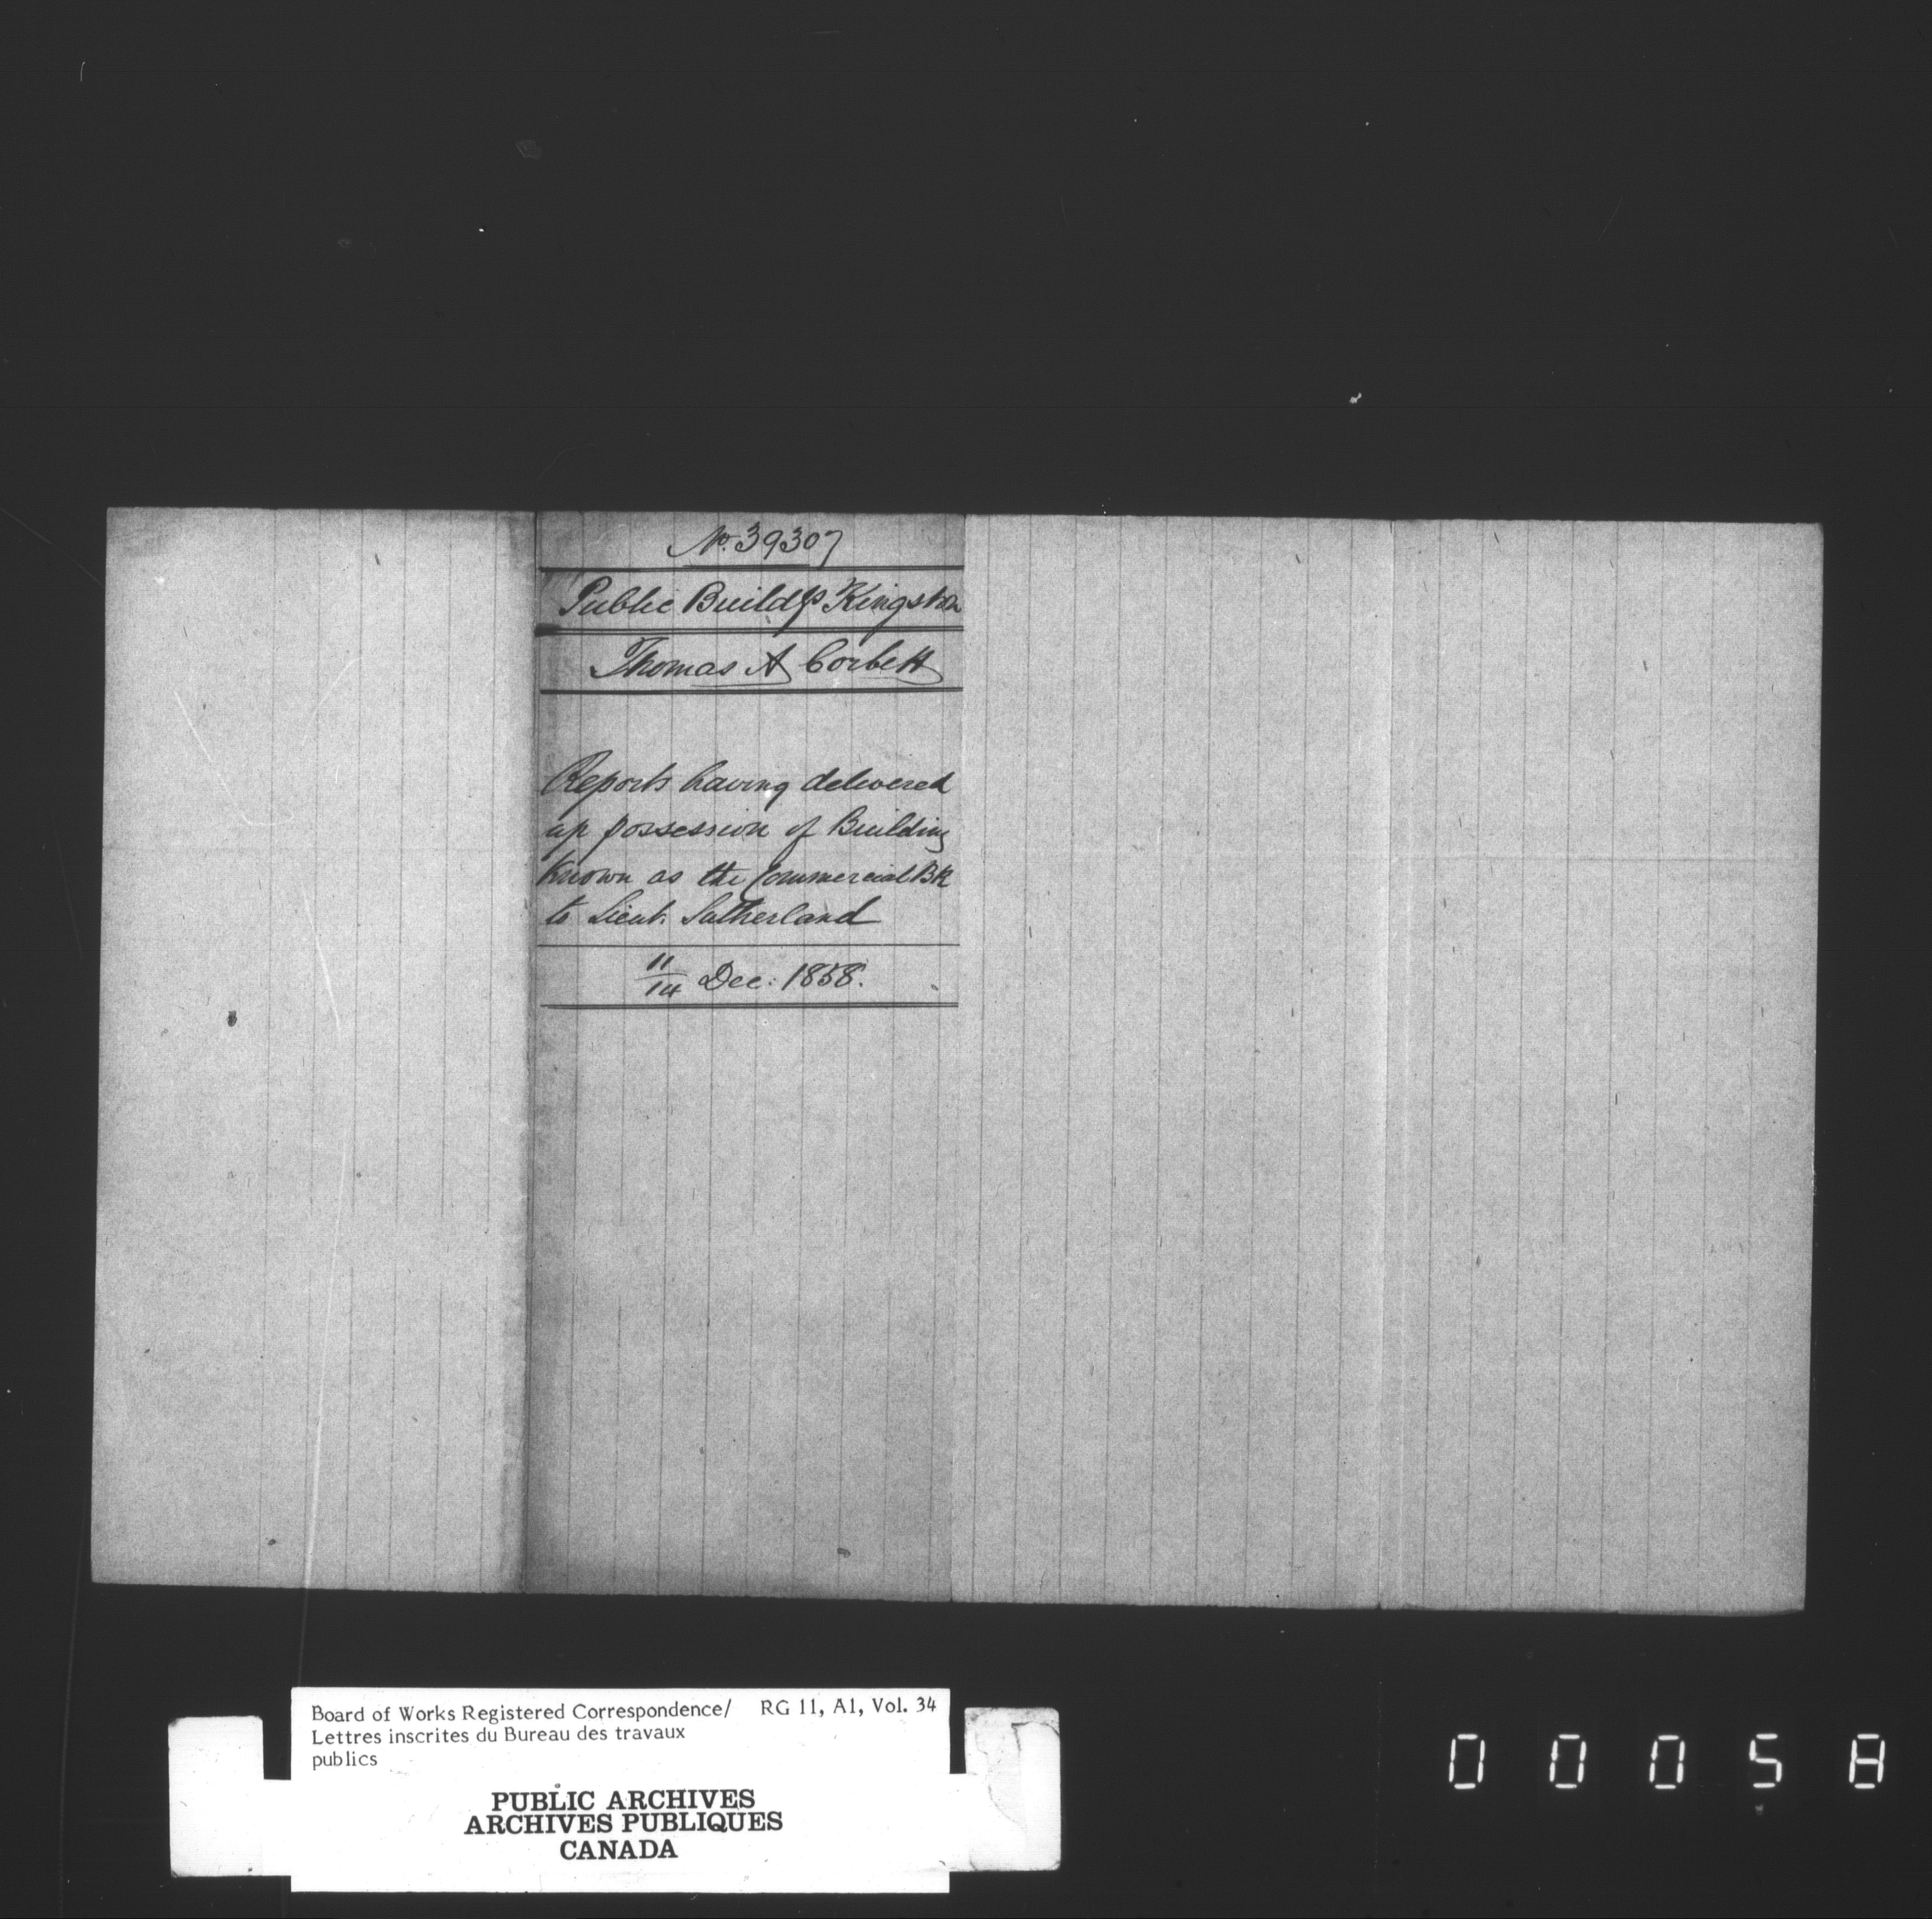 No. 39307
Public Buildgs Kingston
Thomas A Corbett
Reports having delivered
up possession of Building
known as the Commercial Bk
to Lieut. Sutherland
11/14 Dec: 1858.
Board of Works Registered Correspondence/ RG 11, A1, Vol. 34
Lettres inscrites du Bureau des travaux
publics
PUBLIC ARCHIVES
ARCHIVES PUBLIQUES
CANADA
00058